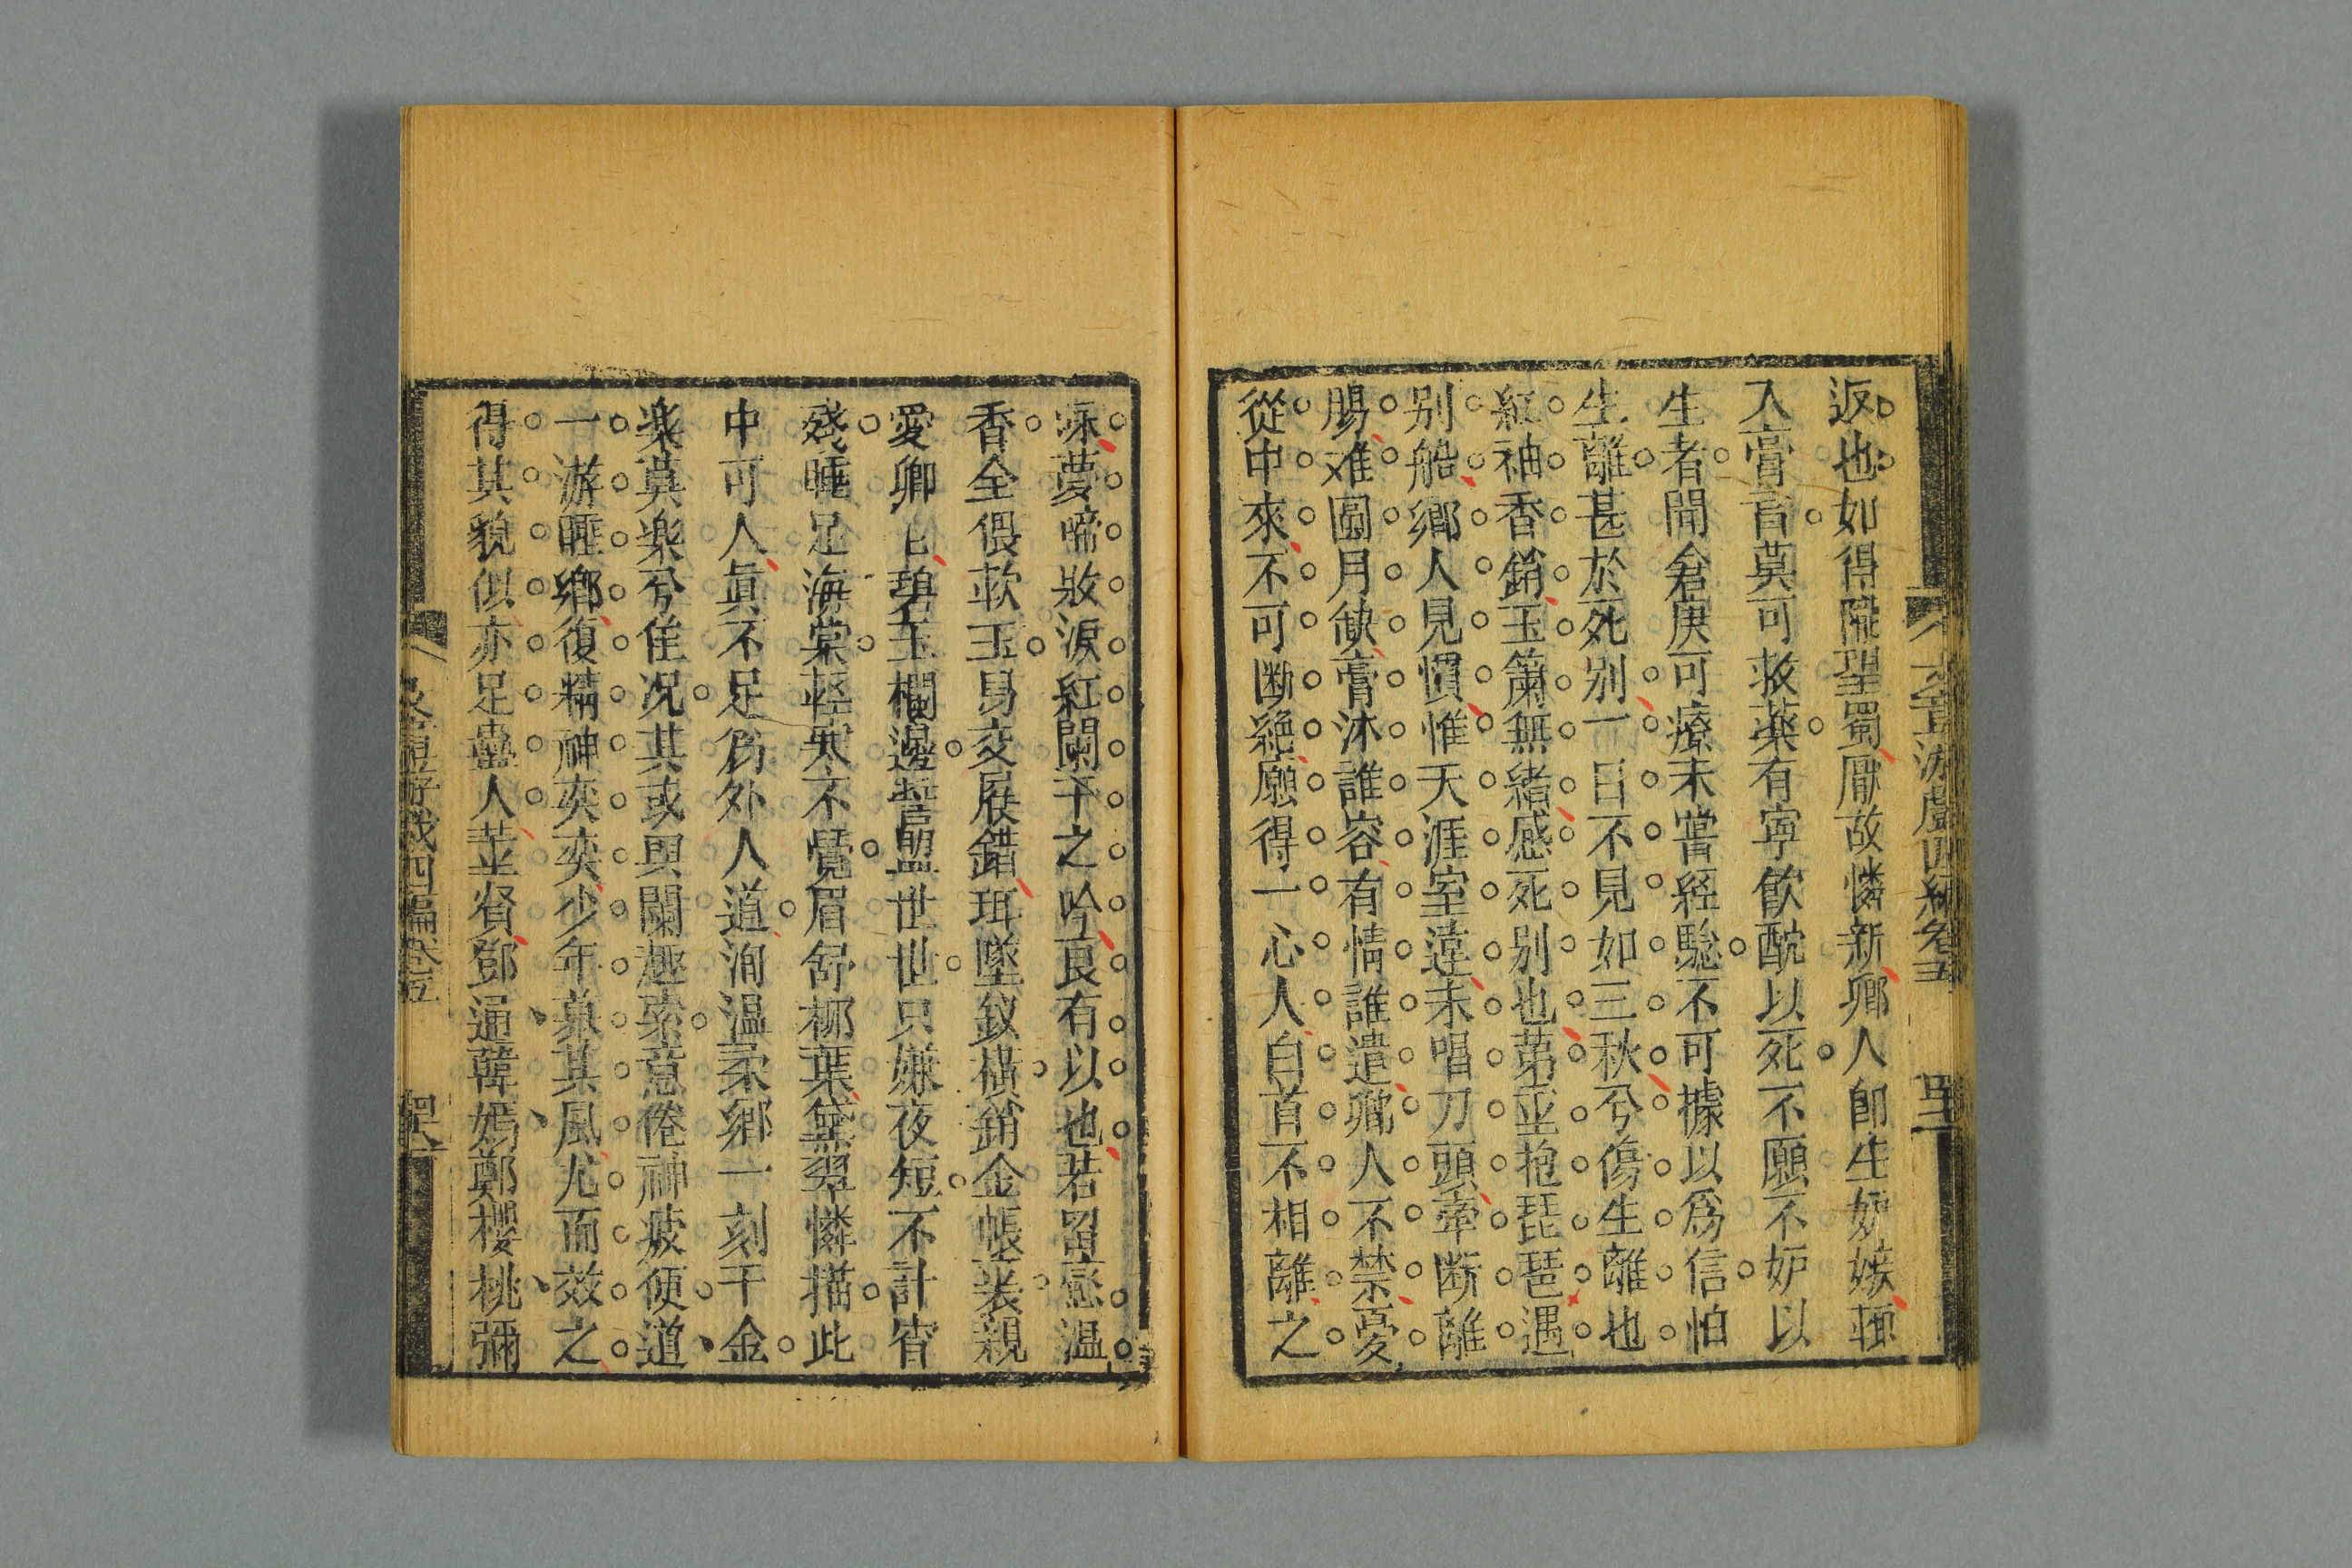 返也如得隴望蜀厭故憐新鄉人卽生妒嫉頓
入膏肓莫可救藥有寧飮酖以死不願不妒以
生者聞倉庚可療未嘗経驗不可據以爲信怕
生離甚於死别一日不見如三秋兮傷生離也
紅袖香銷玉簫無緒感死别也苐亚抱琵琶遇
别船鄉人見慣惟天涯室遠未唱刀頭牽断離
腸难圓月缺膏沐誰容有情誰遣鄉人不禁憂
從中來不可断絕願得一心人白首不相離之
咏夢啼妝淚紅闌干之吟良有以也若畱戀溫
香全偎軟玉舄交屐錯珥墜釵橫銷金帳裝親
愛卿卿碧玉欄邊誓盟世世只嫌夜短不計宵
殘睡足海棠輕寒不覺眉舒柳葉黛翠憐描此
中可人眞不足爲外人道洵溫柔鄉一刻千金
楽莫楽兮佳况其或興闌趣索意倦神疲便道
一游睡鄉復精神奕奕少年慕其風尤而效之
得其貌似亦足蠱人並賓鄧通韓嫣鄭櫻桃彌